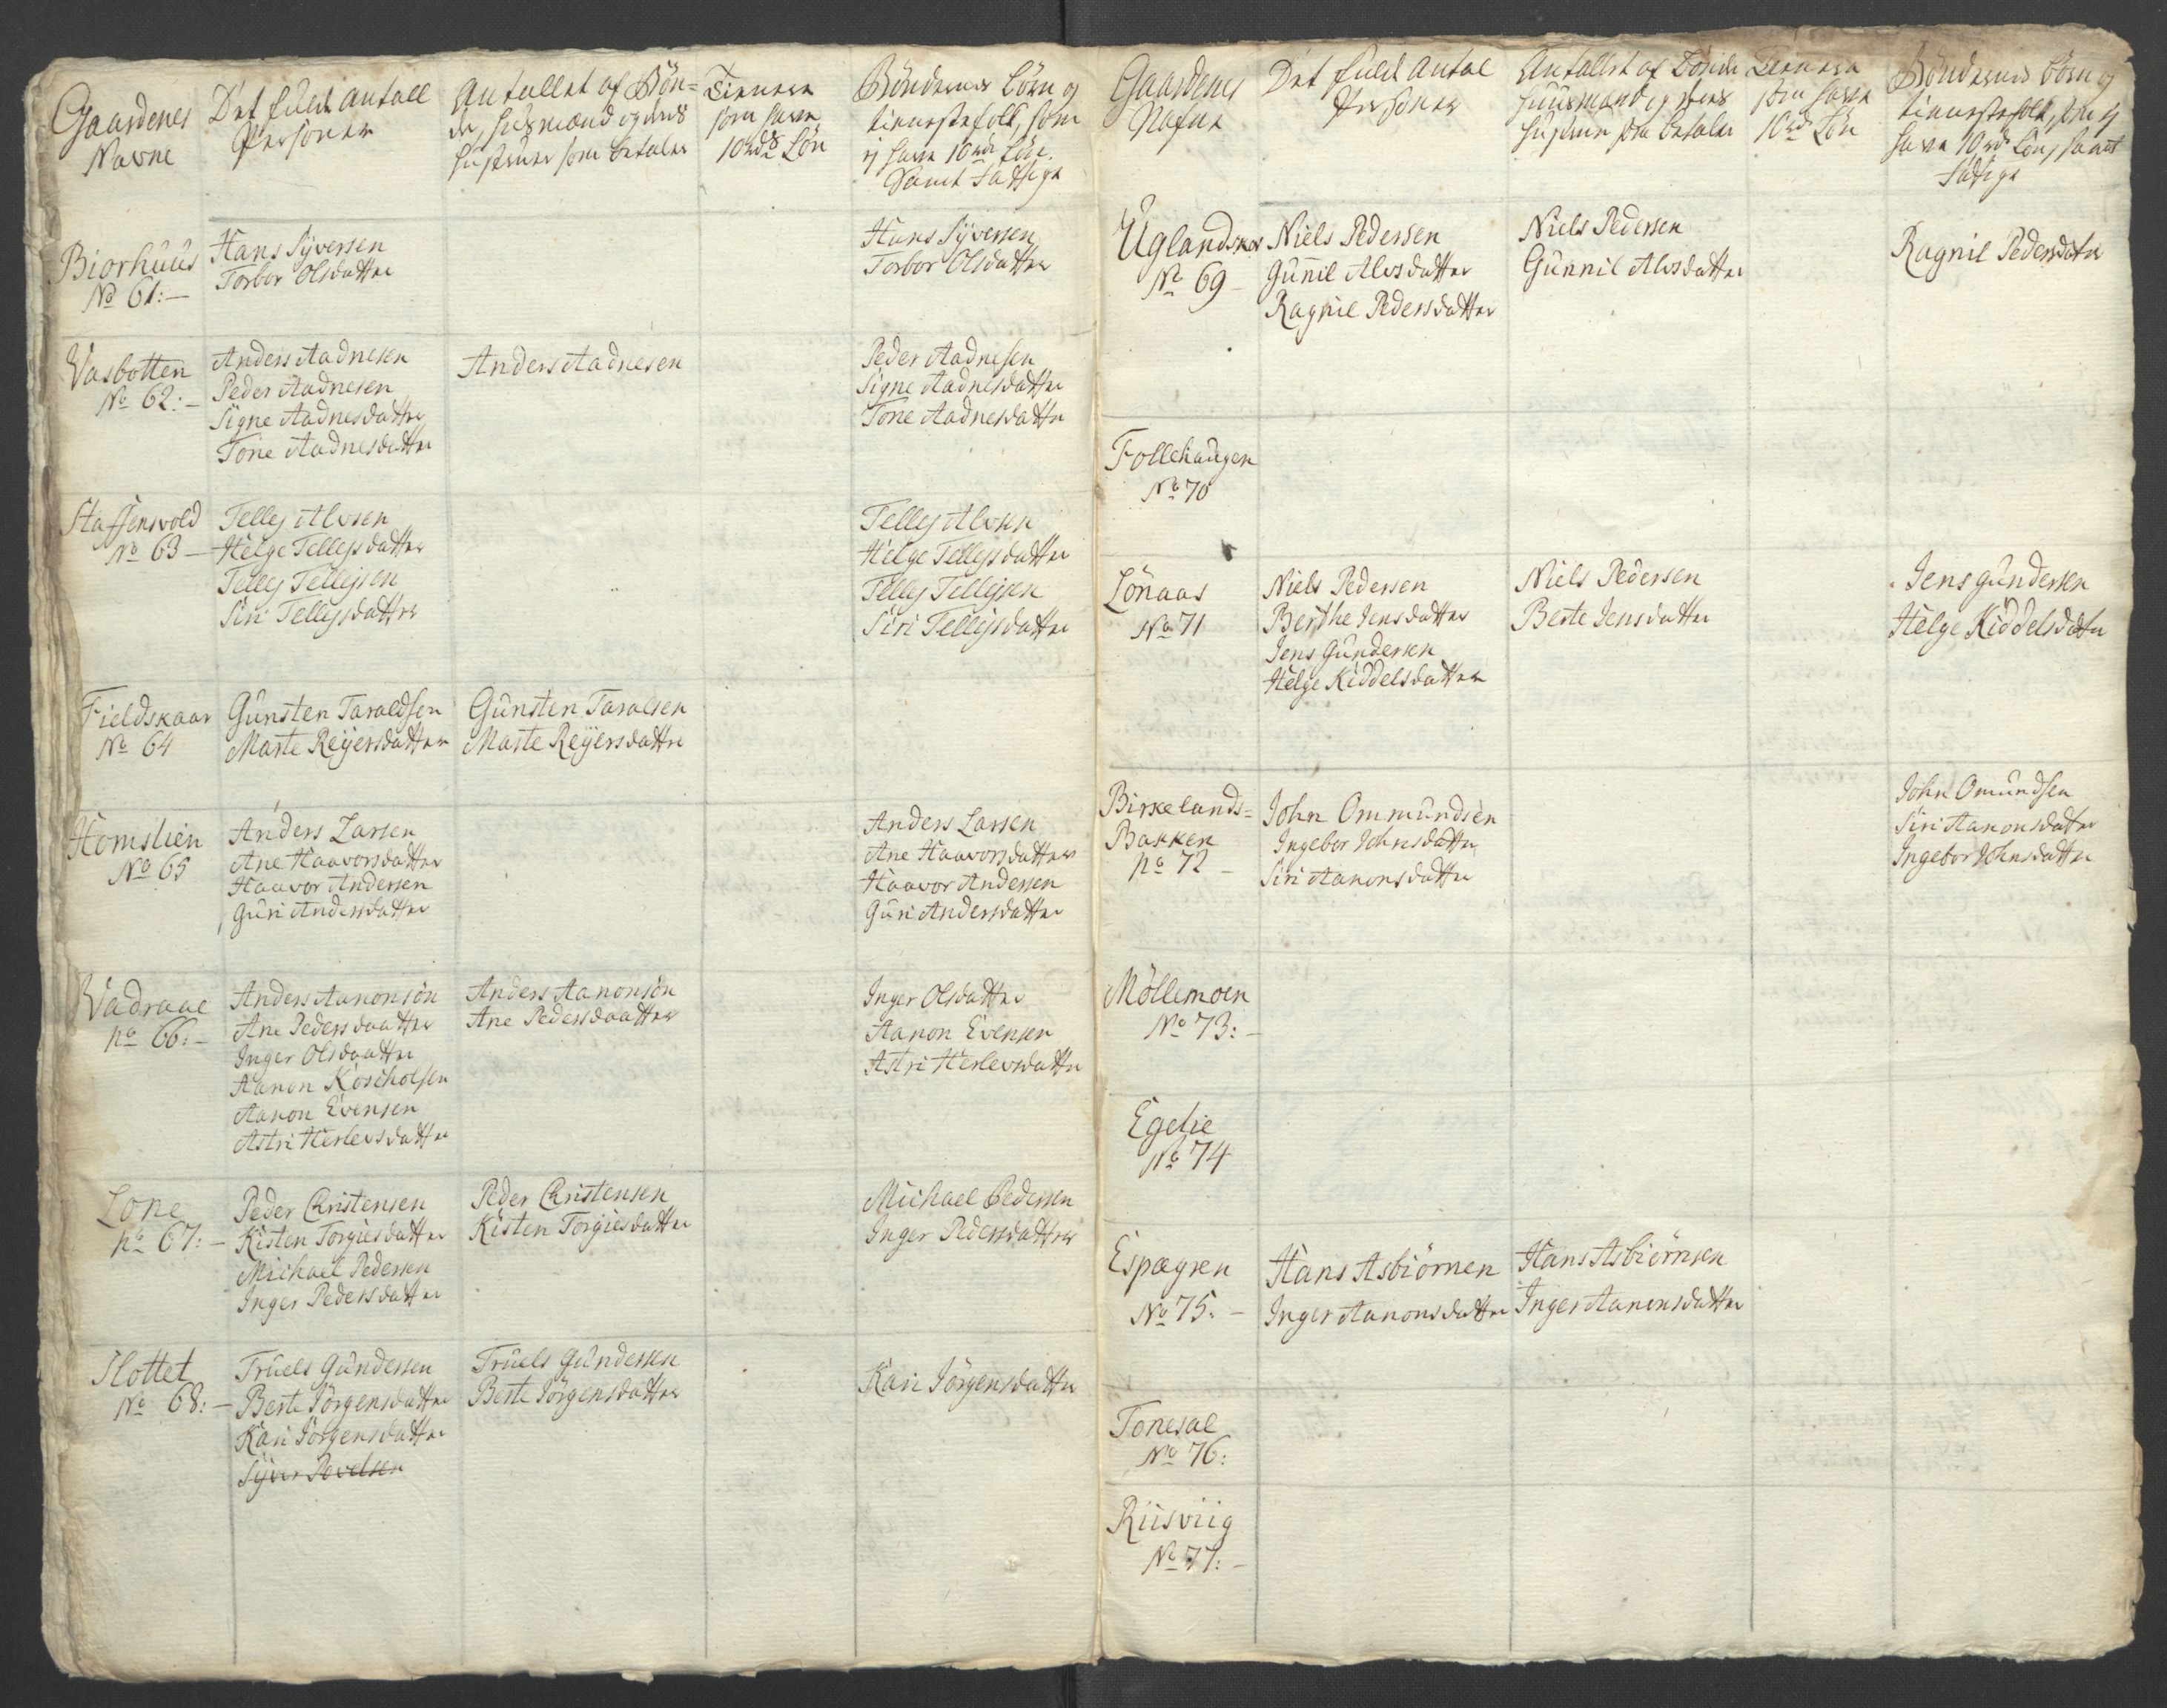 Gaardenes
Navne
Det fulde antall
Persohner
Antallet af Bön-
der, Huusmænd og deres
Hustruer som betaler
Tienere
som have
10 rdr Lön
Böndernes Börn og
tienestefolk, som
ej have 10 rdr Lön.
Samt Fattige
Biorhuus
No 61:-
Hans Syversen
Torbor Olsdatter
Hans Syversen
Torbor Olsdatter
Vasbotten
No 62:-
Anders Aadnesen
Peder Aadnesen
Signe Aadnesdatter
Tone Aadnesdatter
Anders Aadnesen
Peder Aadnesen
Signe Aadnesdatter
Tone Aadnesdatter
Staffensvold
No 63-
Tellej Alvsen
Helge Tellejsdatter
Tellej Tellejsen
Siri Tellejsdatter
Tellej Alvsen
Helge Tellejsdatter
Tellej Tellejsen
Siri Tellejsdatter
Fieldskaar
No 64
Gunsten Taraldsen
Marte Reijersdatter
Gunsten Taralsen
Marte Reijersdatter
Homslien
No 65
Anders Larsen
Ane Haavorsdatter
Haavor Andersen
Guri Andersdatter
Anders Larsen
Ane Haavorsdatter
Haavor Andersen
Guri Andersdatter
Vadraae
no 66:-
Anders Aanonsön
Ane Pedersdaatter
Inger Olsdaatter
Aanon
Aanon Evensen
Astri Herlevsdatter
Anders Aanonsön
Ane Pedersdaatter
Inger Olsdatter
Aanon Evensen
Astri Herlevsdatter
Lone
no 67:-
Peder Christensen
Kisten Torgiesdatter
Michael Pedersen
Inger Pedersdatter
Peder Christensen
Kisten Torgiesdatter
Michael Pedersen
Inger Pedersdatter
Slottet
No 68:-
Truels Gundersen
Berte Jörgensdatter
Kari Jörgensdatter
Syver Povelsen
Truels Gundersen
Berte Jörgensdatter
Kari Jörgensdatter
Gaardenes
Nafne
Det fulde Antal
Persohner
Antallet af Bönder
Huusmænd og deres
Hustruer som betaler
Tienere
som have
10 rdr Lön
Böndernes Börn og
tienestefolk, som ej
have 10 rdr Lön, samt
Fattige
Uglandskar
No 69-
Niels Pedersen
Gunnil Alvsdatter
Ragnil Pedersdatter
Niels Pedersen
Gunnil Alvsdatter
Ragnil Pedersdatter
Follehaugen
No 70
Lönaas
No 71
Niels Pedersen
Berthe Jensdatter
Jens Gundersen
Helge Kiddelsdatter
Niels Pedersen
Berte Jensdatter
Jens Gundersen
Helge Kiddelsdatter
Birkelands-
Bakken
no 72-
John Ommundsen
Ingebor Johnsdatter
Siri Aanonsdatter
John Omundsen
Siri Aanonsdatter
Ingebor Johnsdatter
Möllemoen
No 73:-
Egelie
No 74
Espægren
No 75:-
Hans Asbiörnen
Inger Aanonsdatter
Hans Asbiörnsen
Inger Aanonsdatter
Tonesal
No 76:
Riisviig
No 77:-